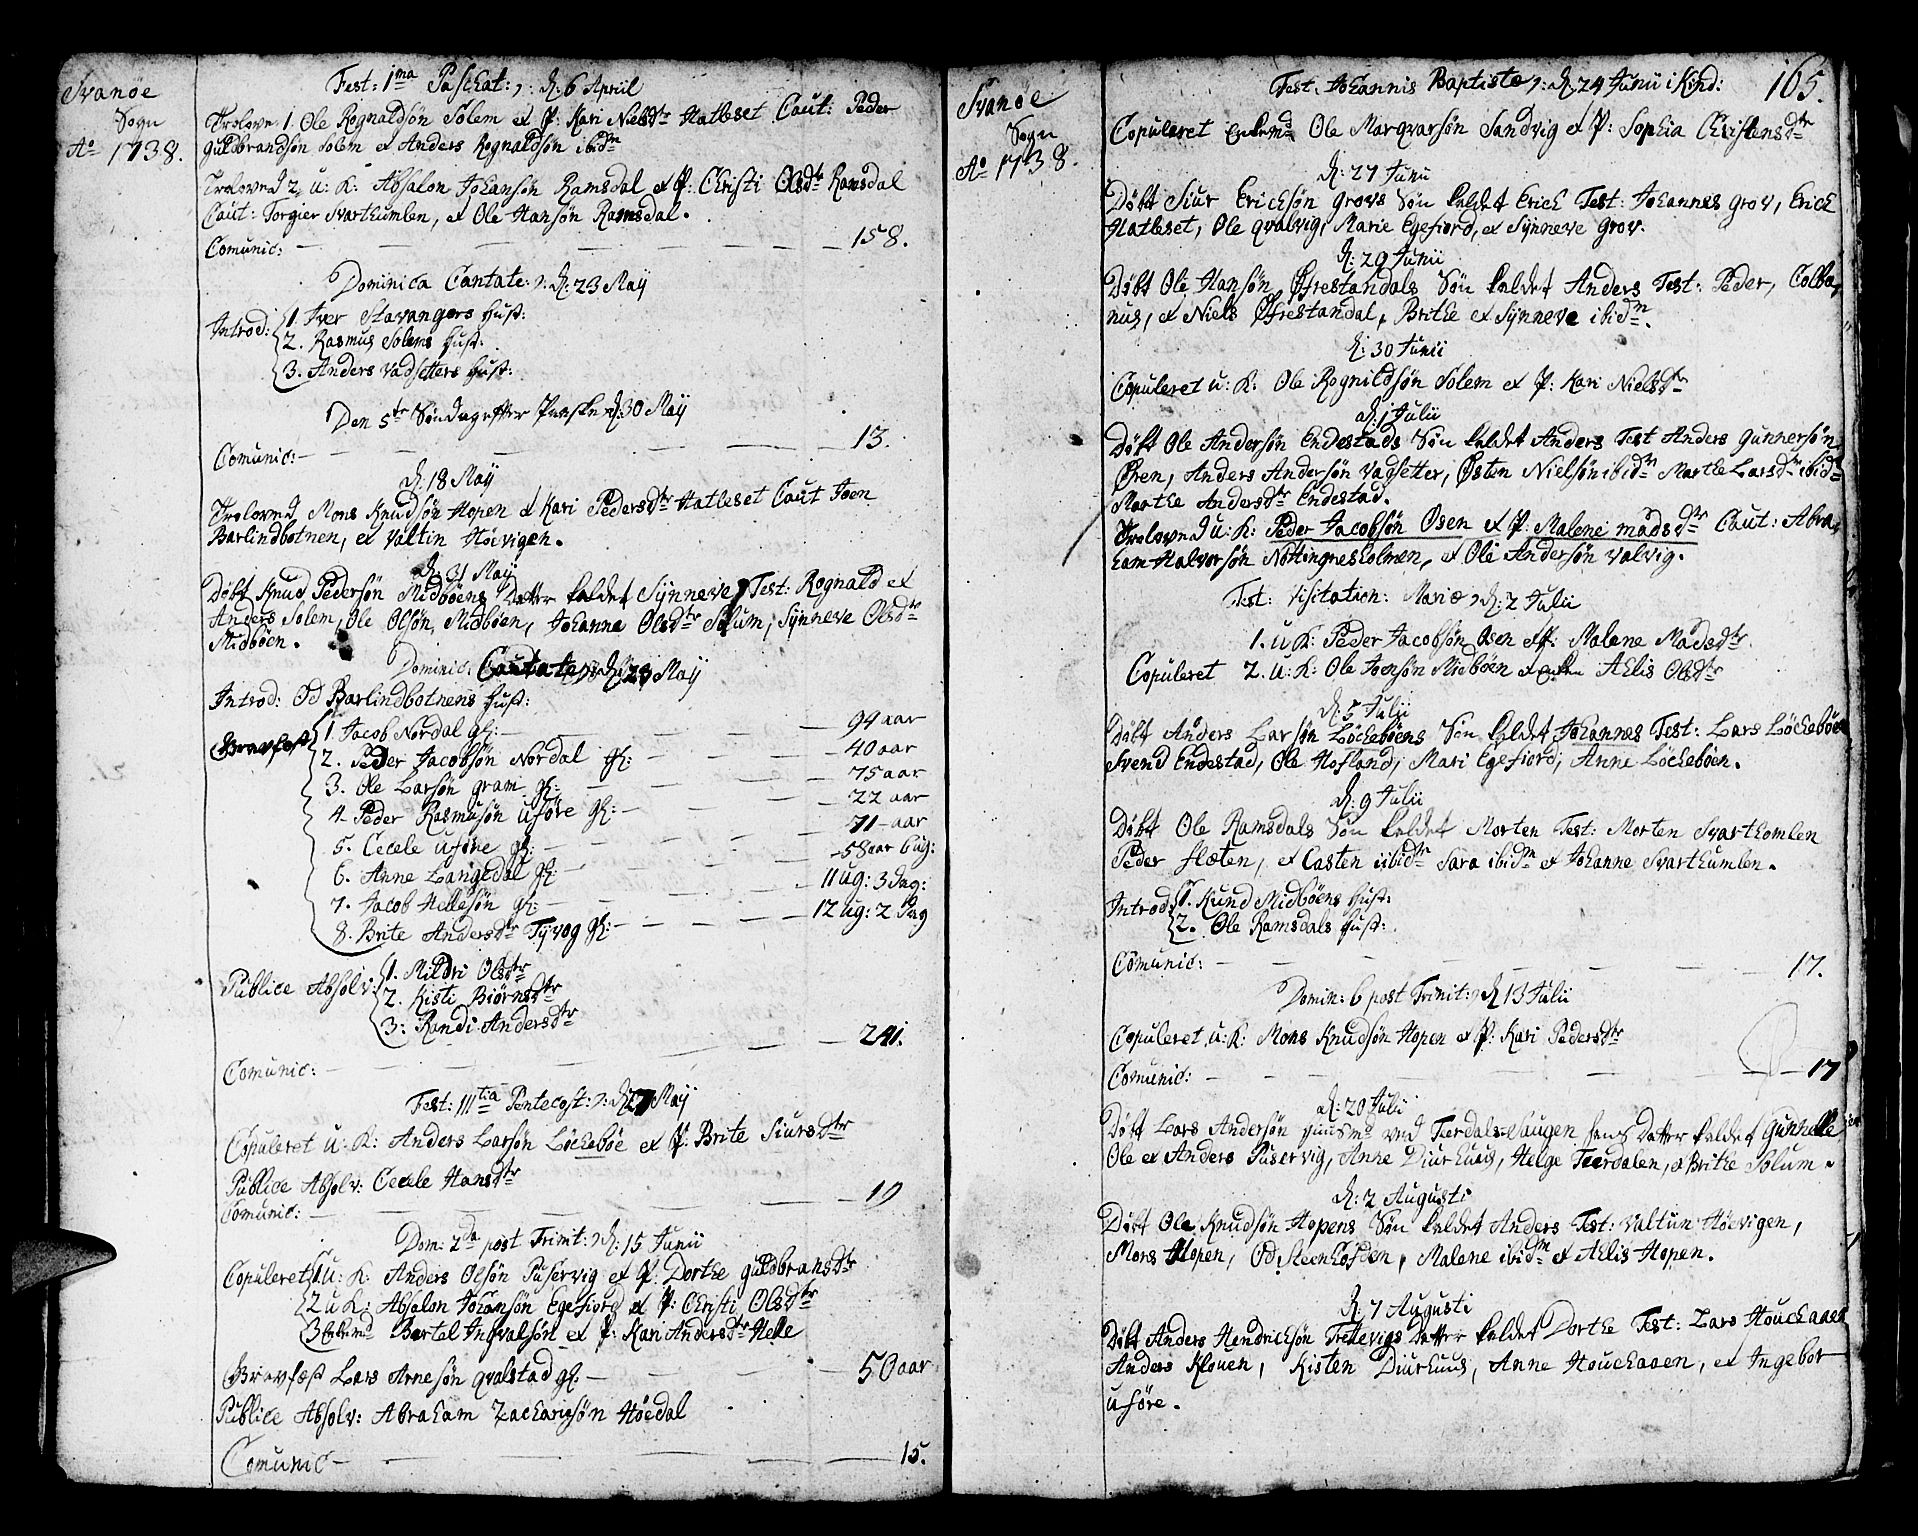 Svanøe
Sogn
Ao 1738.
Fest: 1ma Paschat: ɔ: d: 6 April
Trolove. 1. Ole Rognaldsøn Solem et P: Kari Nielsdtr Hatleset Caut: Peder
Guldbrandsøn Solem et Anders Rognaldsøn ibidm
Troloved 2. u: K: Absalon Johansøn Ramsdal et P: Christi Olsdtr Ramsdal
Caut: Torgier Svarthumlen, et Ole Hansøn Ramsdal.
Comunic: — 158.
Dominica Cantate: ɔ: d: 23 Maÿ
Introd: 1. Iver Stavangers hust:
2. Rasmus Solems hust:
3. Anders Vadsetters hust:
Den 5te Søndag efter Paaske d: 30 Maÿ
Comunic: — 13.
d: 18 Maÿ
Troloved Mons Knudsøn Hopen et Kari Pedersdtr Hatleset Caut Joen
Barlindbotnen, et Valtin Høivigen.
d: 31 Maÿ
Døbt Knud Pedersøn Midbøens Datter kaldet Synneve, Test: Rognald et
Anders Solem, Ole Olsøn Midbøen, Johanne Olsdtr Solum, Synneve Olsdtr
Midbøen.
Dominic: Cantate ɔ: d: 23 Maÿ
Introd: Od Barlindbotnens hust:
1. Jacob Nordal gl: — 94 aar
2. Peder Jacobsøn Nordal gl: — 40 aar
3. Ole Larsøn gram gl: — 75 aar
4. Peder Rasmusøn Uføre gl: — 22 aar
5. Cecele Uføre gl: — 71 — aar
6. Anne Langedal gl: — 58 aar 6 ug:
7. Jacob Hellesøn gl: — 11 ug: 3 dag:
8. Brite Andersdtr Tyvog gl: — 12 ug: 2 dag
Publice Absolv: 1. Mildri Olsdtr
2. Kisti Biørnsdtr
3: Randi Andersdtr
241.
Comunic: —
Fest: IIItia Pentecost: ɔ: d: 27 Maÿ
Copuleret u: K: Anders Larsøn Løckebøe et P: Brite Siursdtr
Publice Absolv: Cecele Hansdtr
Comunic: — 19
Dom: 2da post Trinit: ɔ: d: 15 Junii
Copuleret 1. u: K: Anders Olsøn Puservig et P: Dorthe Guldbransdtr
2 u K: Absalon Johansøn Egefiord et P: Christi Olsdtr
3 Enkemd Bertel Ingvalsøn et P: Kari Andersdtr Helle
Gravfæst Lars Arnesøn qvalstad gl. — 50 aar
Publice Absolv: Abraham Zachariesøn Høedal
Comunic — 15.
Svanøe
Sogn
Ao 1738.
165.
Fest: Johannis Baptistæ ɔ: d: 24 Junii i Kind:
Copuleret Enkemd Ole Marqvarsøn Sandvig et P: Sophia Christensdtr
d: 27 Junii
Døbt Siur Erichsøn Grovs Søn kaldet Erich Test: Johannes Grov, Erich
Hatleset, Ole qvalvig, Marie Egefiord, et Sÿnneve Grov.
d: 29 Junii
Døbt Ole Hansøn Øfrestandals Søn kaldet Anders Test: Peder, Colba,
nus, et Niels Øfrestandal, Brithe et Synneve ibidm.
d: 30 Junii
Copuleret u: K: Ole Rognildsøn Solem et P: Kari Nielsdtr
d: 1 Julii
Døbt Ole Andersøn Endestads Søn kaldet Anders Test Anders Gunnersøn
Øren, Anders Andersøn Vadsetter, Østen Nielsøn ibidm Marthe Larsdtr ibidm
Marthe Andersdtr Endestad.
Troloved u: K: Peder Jacobsøn Osen et P: Malene Madsdtr Caut: Abra,
ham Halvorsøn Nøttingnesholmen, et Ole Andersøn Valvig.
Fest: Visitation: Mariæ ɔ: d: 2 Julii
1. u K: Peder Jacobsøn Osen et P: Malene Madsdtr.
Copuleret 2. u: K: Ole Joensøn Midbøen et Aelis Olsdtr
d: 5 Julii
Døbt Anders Larsøn Løckebøens Søn kaldet Johannes Test: Lars Løckebøen
Svend Endestad, Ole Hofland, Mari Egefiord, Anne Løckebøen.
d: 9 Julii
Døbt Ole Ramsdals Søn kaldet Morten Test: Morten Svarthomlen
Peder flæten, et Casten ibidm Sara ibidm et Johanne Svarthumlen.
Introd: 1. Kund Midbøens hust:
2. Ole Ramsdals hust:
Comunic: — 17.
Domin: 6 post Trinit: ɔ: d 13 Julii
Copuleret u: K: Mons Knudsøn Hopen et P: Kari Pedersdtr
Comunic: — 17
d: 20 Julii
Døbt Lars Andersøn huusmd ved Teerdals-Saugen hans Datter kaldet Gunhelle
Ole et Anders Puservig, Anne Diurhuus, Helge Teerdalen, et Brithe Solum.
d: 2 Augusti
Døbt Ole Knudsøn Hopens Søn kaldet Anders Test: Valtun Høevigen,
Mons Hopen, Od Steenhofden, Malene ibidm et Aelis Hopen.
d: 7 Augusti
Døbt Anders Hendrichsøn Trettevigs Datter kaldet Dorthe Test: Lars Houchaaen
Anders Kloven, Kisten Diurhuus, Anne Houchaaen, et Ingebor
uføre.